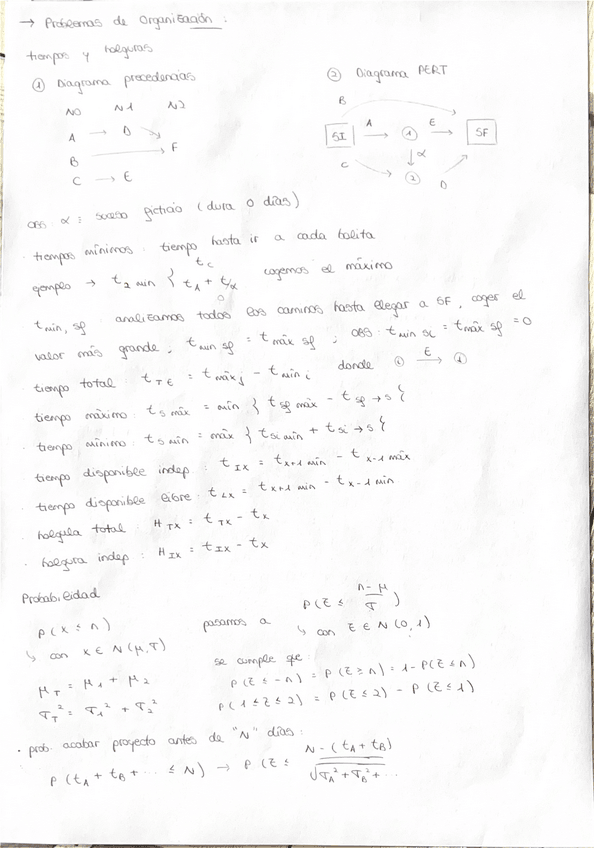 → Problemas de Organización :
tiempos y holguras
① Diagrama precedencias
② Diagrama PERT
N0 N1 N2
A → D
B → F
C → E
B
SI A → ① E → SF
↓ α
C ② D
OBS: α = suceso ficticio (dura 0 días)
· tiempos mínimos : tiempo hasta ir a cada bolita
ejemplo → t₂ min { tc
tA + tα cogemos el máximo
0
t min, sf : analizamos todos los caminos hasta llegar a SF, coger el
valor más grande ; t min sf = t máx sf ; OBS : t min si = t máx sf = 0
tiempo total : t TE = t máx j - t min i donde ⓘ E → ⓙ
tiempo máximo : t s máx = min { t sf máx - t sf → s }
· tiempo mínimo : t s min = máx { t si min + t si → s }
tiempo disponible indep : t IX = t x+1 min - t x-1 máx
tiempo disponible libre : t LX = t x+1 min - t x-1 min
· holgula total : H TX = t TX - t x
· holgura indep : H IX = t IX - t x
Probabilidad
P(x ≤ n) pasamos a P(Z ≤ (n-μ)/σ)
↳ con x ∈ N(μ,σ) ↳ con Z ∈ N(0,1)
μT = μ1 + μ2
σT² = σ1² + σ2²
se cumple que :
P(Z ≤ -n) = P(Z ≥ n) = 1 - P(Z ≤ n)
P(1 ≤ Z ≤ 2) = P(Z ≤ 2) - P(Z ≤ 1)
· prob. acabar proyecto antes de "N" días :
P(tA + tB + ... ≤ N) → P(Z ≤ (N - (tA + tB))/√σA² + σB² + ...